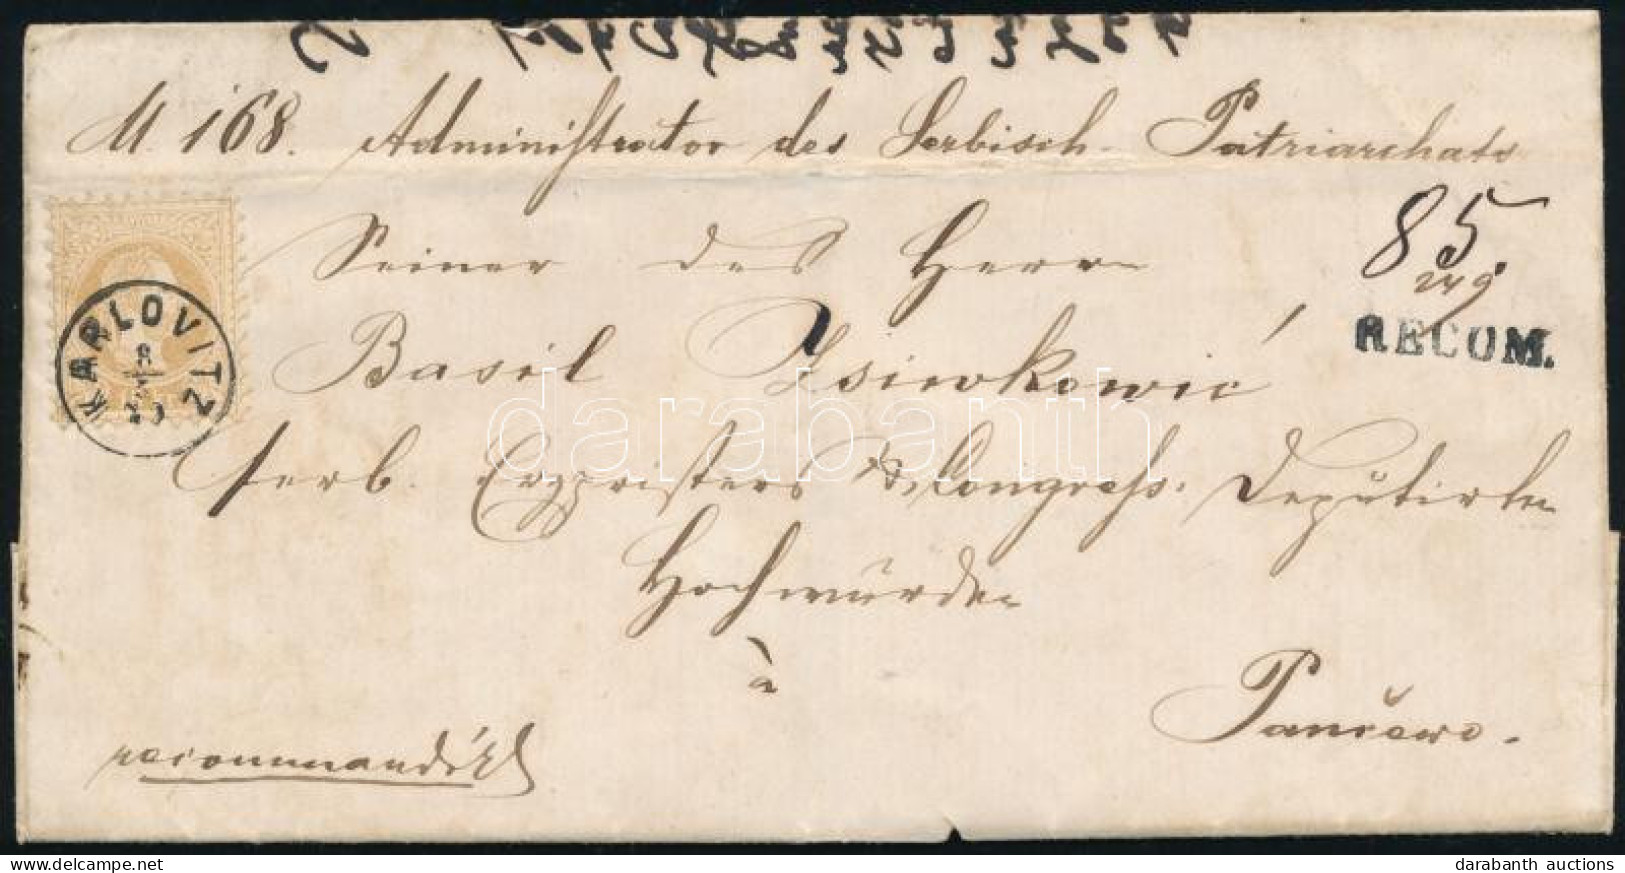 M. 168. Administrator des Serbisch. Patriarchats
85.
249
RECOM.
KARLOVITZ
8
Seiner des Herrn
Basil Zsiwkowić
serb. Erzpriesters & Congress. Deputirten
Hochwürden
à
Pančowo.
recommandirt
darabanth
darabanth auctions